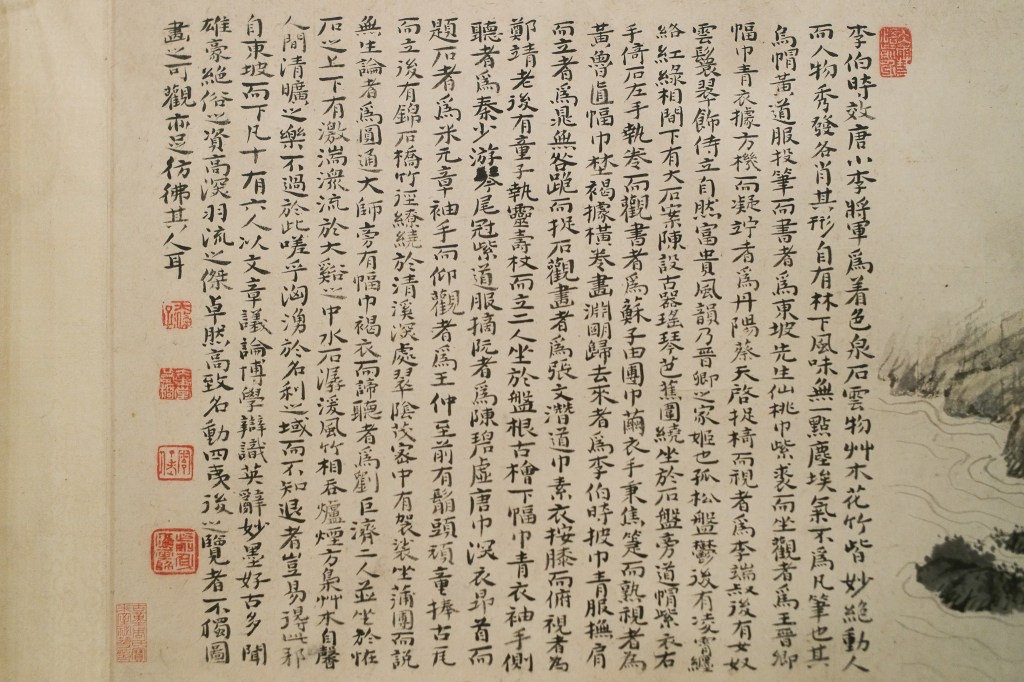 李伯時效唐小李將軍為着色泉石雲物艸木花竹皆妙絶動人
而人物秀發各肖其形自有林下風味無一點塵埃氣不為凡筆也其
烏帽黃道服投筆而書者為東坡先生仙桃巾紫裘而坐觀者為王晉卿
幅巾青衣據方機而凝竚者為丹陽蔡天啓捉椅而視者為李端叔後有女奴
雲鬟翠飾侍立自然富貴風韻乃晉卿之家姬也孤松盤鬱後有凌霄纏
絡紅綠相間下有大石案陳設古器瑤琴芭蕉圍繞坐於石盤旁道帽紫衣右
手倚石左手執卷而觀書者為蘇子由團巾繭衣手秉焦箑而熟視者為
黃魯直幅巾埜褐據橫卷畫淵明歸去來者為李伯時披巾青服撫肩
而立者為晁無咎跪而捉石觀畫者為張文潛道巾素衣按膝而俯視者為
鄭靖老後有童子執靈壽杖而立二人坐於盤根古檜下幅巾青衣袖手側
聽者為秦少游琴尾冠紫道服摘阮者為陳碧虛唐巾深衣昂首而
題石者為米元章袖手而仰觀者為王仲至前有鬅頭頑童捧古瓦
而立後有錦石橋竹逕繚繞於清溪深處翠陰茂密中有袈裟坐蒲團而說
無生論者為圓通大師旁有幅巾褐衣而諦聽者為劉巨濟二人並坐於怪
石之上下有激湍潨流於大谿之中水石潺湲風竹相吞爐煙方裊艸木自馨
人間清曠之樂不過於此嗟乎洶湧於名利之域而不知退者豈易得此邪
自東坡而下凡十有六人以文章議論博學辯識英辭妙墨好古多聞
雄豪絕俗之資高深羽流之傑卓然高致名動四夷後之覽者不獨圖
畫之可觀亦足彷彿其人耳